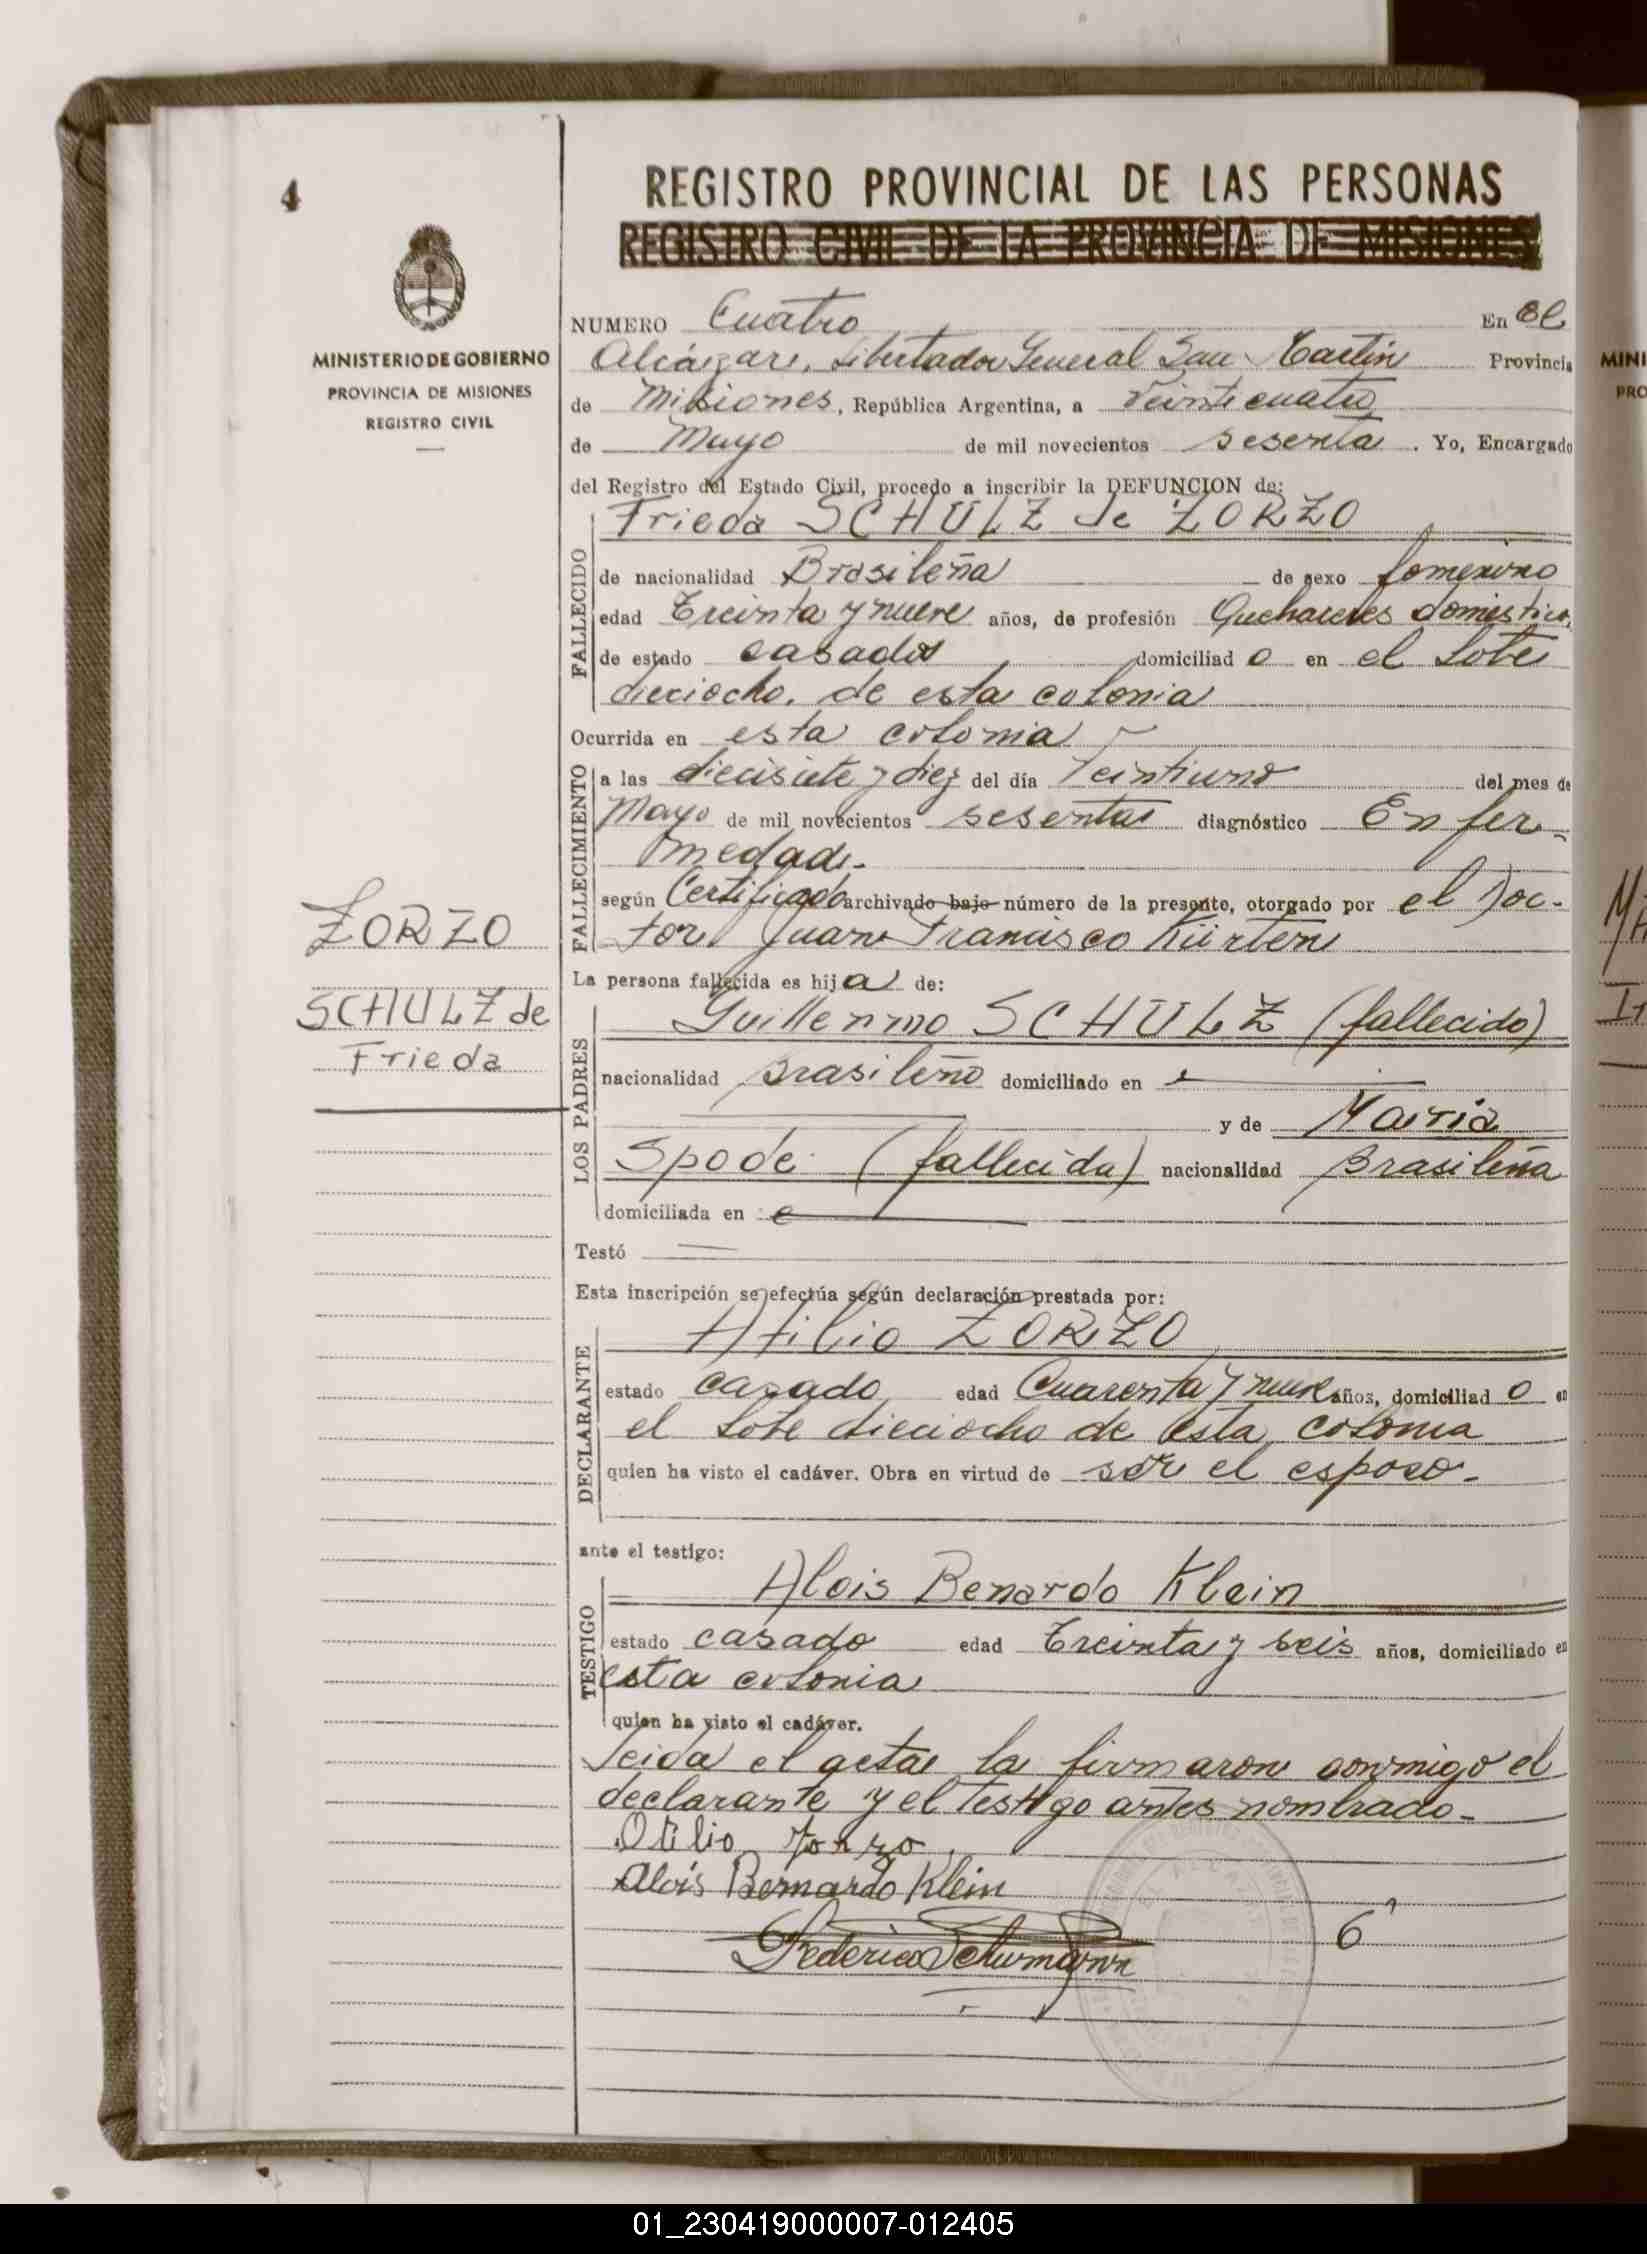 4
REGISTRO PROVINCIAL DE LAS PERSONAS
REGISTRO CIVIL DE LA PROVINCIA DE MISIONES
MINISTERIO DE GOBIERNO
PROVINCIA DE MISIONES
REGISTRO CIVIL
NUMERO Cuatro En el
Alcázar, Libertador General San Martín Provincia
de Misiones, República Argentina, a Veinticuatro
de Mayo de mil novecientos sesenta. Yo, Encargado
del Registro del Estado Civil, procedo a inscribir la DEFUNCION de:
FALLECIDO
Frieda SCHULZ de ZORZO
de nacionalidad Brasileña de sexo femenino
edad Treinta y nueve años, de profesión Quehaceres domésticos,
de estado casada domiciliad o en el Lote
dieciocho, de esta colonia
Ocurrida en esta colonia
FALLECIMIENTO
a las diecisiete y diez del día Veintiuno del mes de
Mayo de mil novecientos sesenta diagnóstico Enfer-
medad.
según Certificado archivado bajo número de la presente, otorgado por el Doc-
tor Juan Francisco Kürten
ZORZO
SCHULZ de
Frieda
La persona fallecida es hij a de:
LOS PADRES
Guillermo SCHULZ (fallecido)
nacionalidad Brasileño domiciliado en
y de Maria
Spode (fallecida) nacionalidad Brasileña
domiciliada en
Testó
Esta inscripción se efectúa según declaración prestada por:
DECLARANTE
Atilio ZORZO
estado casado edad Cuarenta y nueve años, domiciliad o en
el Lote dieciocho de esta colonia
quien ha visto el cadáver. Obra en virtud de ser el esposo.-
ante el testigo:
TESTIGO
Alois Benardo Klein
estado casado edad Treinta y seis años, domiciliado en
esta colonia
quien ha visto el cadáver.
Leida el acta la firmaron conmigo el
declarante y el testigo antes nombrado-
Otilio Zorzo
Alois Bernardo Klein
Federico Schurmann
6
MINI
PRO
01_230419000007-012405